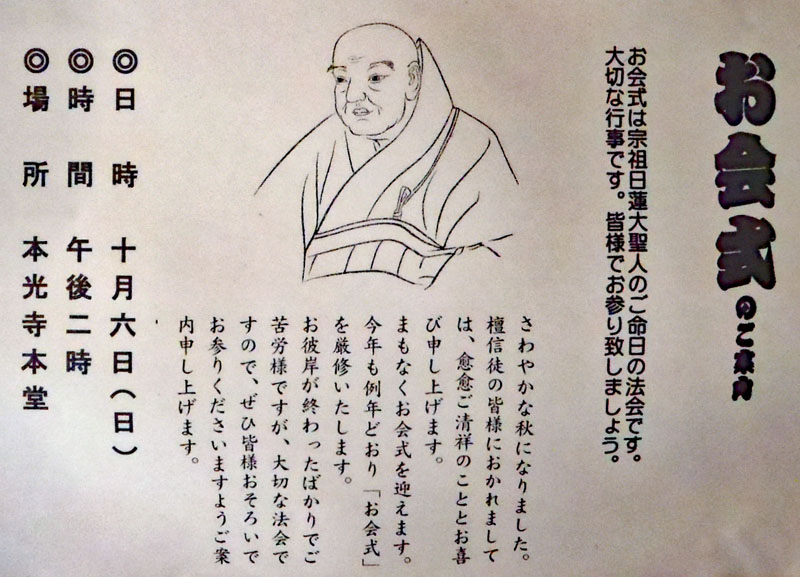 お会式のご案内
お会式は宗祖日蓮大聖人のご命日の法会です。
大切な行事です。皆様でお参り致しましょう。
さわやかな秋になりました。
檀信徒の皆様におかれまして
は、愈愈ご清祥のこととお喜
び申し上げます。
まもなくお会式を迎えます。
今年も例年どおり「お会式」
を厳修いたします。
お彼岸が終わったばかりでご
苦労様ですが、大切な法会で
すので、ぜひ皆様おそろいで
お参りくださいますようご案
内申し上げます。
◎日 時 十月六日(日)
◎時 間 午後二時
◎場 所 本光寺本堂